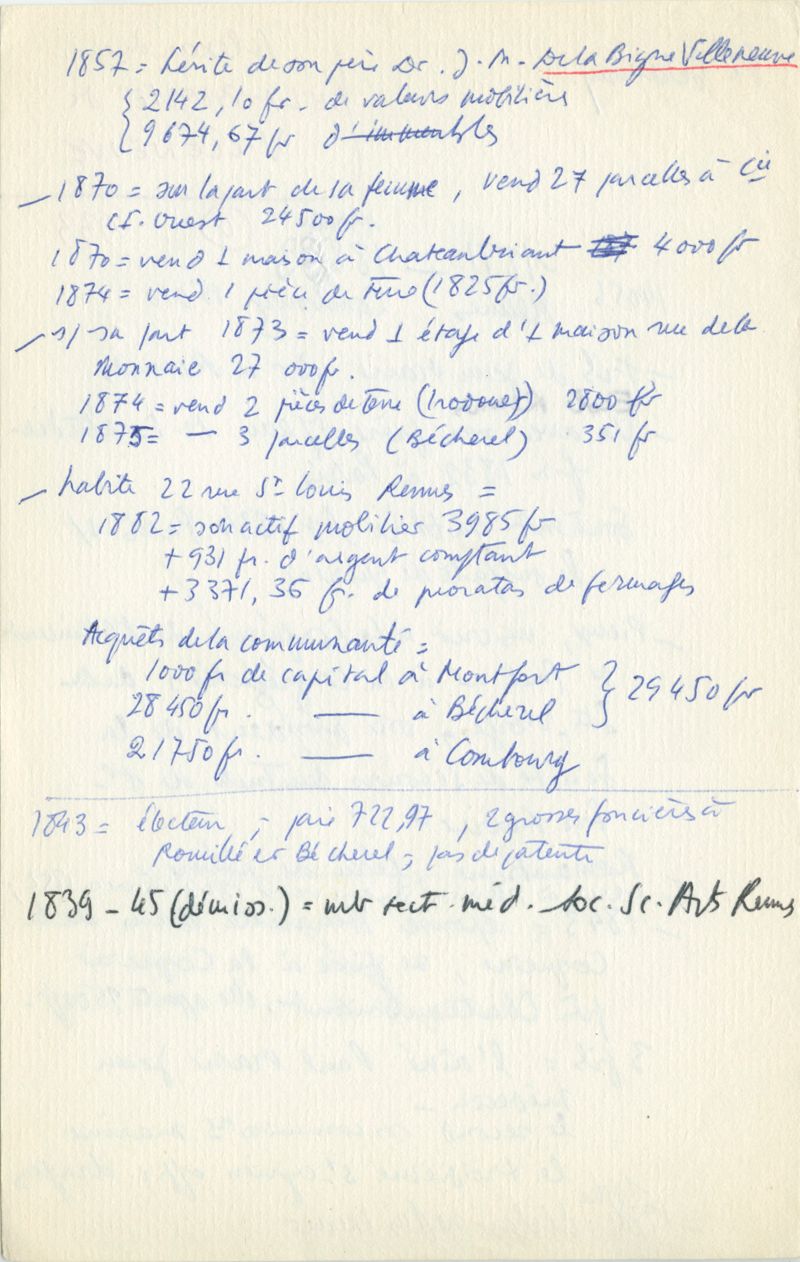 1857 = hérite de son père Dr. J. M. De la Bigne Villeneuve
2142,10 fr. de valeurs mobilières
9674,67 fr d'immeubles
– 1870 = sur la part de sa femme, vend 27 parcelles à Cie
cf. ouest 24500 fr.
1870 = vend 1 maison à Chateaubriant 4000 fr
1874 = vend 1 pièce de terre (1825 fr.)
– s/ sa part 1873 = vend 1 étage d'1 maison rue de la
Monnaie 27 000 fr.
1874 = vend 2 pièces de terre (Irodouer) 2800 fr
1875 = — 3 parcelles (Bécherel) 351 fr
– habite 22 rue St Louis Rennes =
1882 = son actif mobilier 3985 fr
+ 931 fr. d'argent comptant
+ 3371,36 fr. de proratas de fermages
Acquêts de la communauté =
1000 fr de capital à Montfort
28450 fr. — à Bécherel } 29450 fr
21750 fr. — à Combourg
1843 = électeur, – paie 722,97, 2 grosses foncières à
Romillé et Bécherel, pas de patente
1839 – 45 (démiss.) = mb sect. méd. Soc. Sc. Arts Rennes